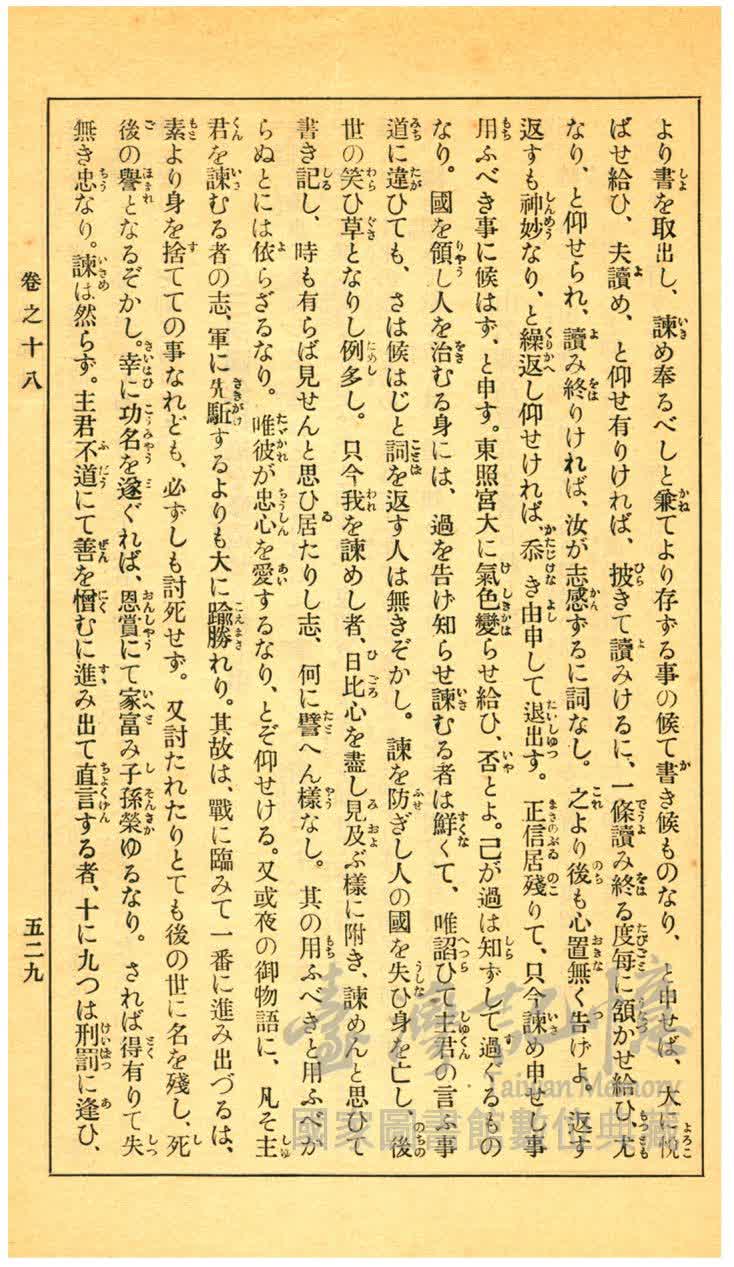 より書を取出し、諫め奉るべしと兼てより存ずる事の候て書き候ものなり、と申せば、大に悅
ばせ給ひ、夫讀め、と仰せ有りければ、披きて讀みけるに、一條讀み終る度每に頷かせ給ひ、尤
なり、と仰せられ、讀み終りければ、汝が志感ずるに詞なし。之より後も心置無く告げよ。返す
返すも神妙なり、と繰返し仰せければ、忝き由申して退出す。正信居殘りて、只今諫め申せし事
用ふべき事に候はず、と申す。東照宮大に氣色變らせ給ひ、否とよ。己が過は知ずして過ぐるもの
なり。國を領し人を治むる身には、過を告げ知らせ諫むる者は鮮くて、唯諂ひて主君の言ふ事
道に違ひても、さは候はじと詞を返す人は無きぞかし。諫を防ぎし人の國を失ひ身を亡し、後
世の笑ひ草となりし例多し。只今我を諫めし者、日比心を盡し見及ぶ樣に附き、諫めんと思ひて
書き記し、時も有らば見せんと思ひ居たりし志、何に譬へん樣なし。其の用ふべきと用ふべか
らぬとには依らざるなり。唯彼が忠心を愛するなり、とぞ仰せける。又或夜の御物語に、凡そ主
君を諫むる者の志、軍に先駈するよりも大に踰勝れり。其故は、戰に臨みて一番に進み出づるは、
素より身を捨てての事なれども、必ずしも討死せず。又討たれたりとても後の世に名を殘し、死
後の譽となるぞかし。幸に功名を遂ぐれば、恩賞にて家富み子孫榮ゆるなり。されば得有りて失
無き忠なり。諫は然らず。主君不道にて善を憎むに進み出て直言する者、十に九つは刑罰に逢ひ、
卷之十八
五二九
臺灣記憶
Taiwan Memory
國家圖書館數位典藏